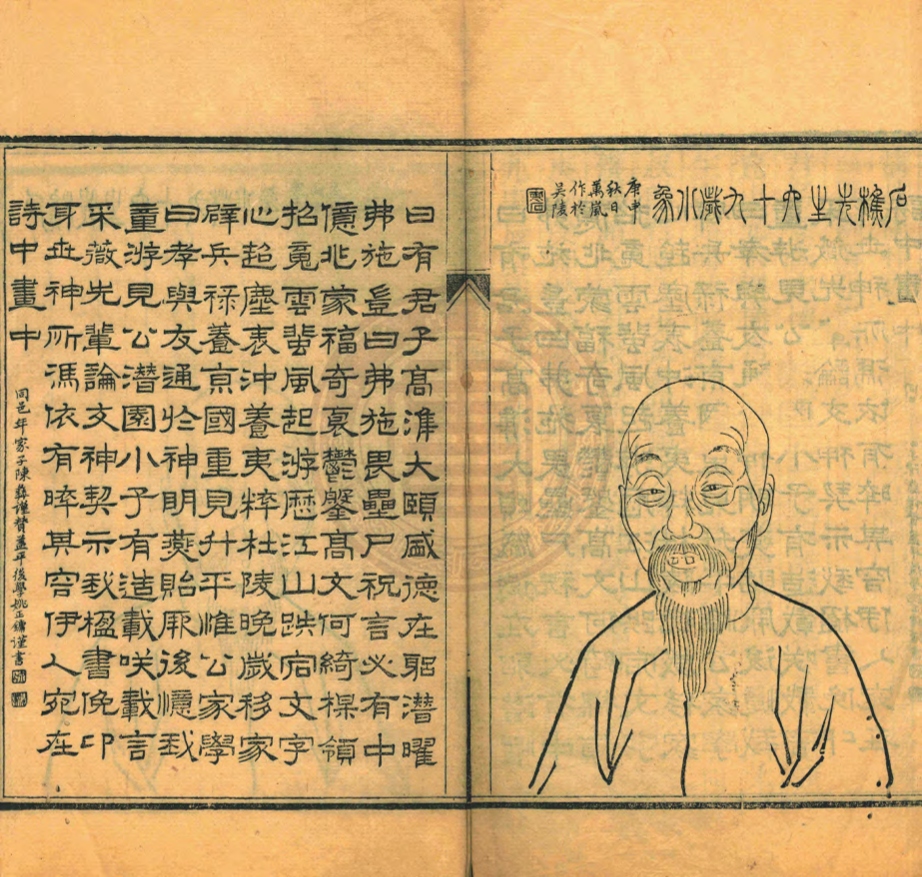 石樵先生六十九歲小象
庚申
秋日
萬嵐
作於
吳陵
曰有君子高淮大頤盛德在躬潛曜
弗施豈曰弗施畏壘尸祝言必有中
億兆蒙福奇褱鬱鏧高文何綺領
招䰟雲蜚風起游歷江山跌宕文字
心超塵表沖養夷粹杜陵晚歲移家
辟兵祿養京國重見升平惟公家學
曰孝與友通於神明燕貽厥後憶我
童游見公潛園小子有造載咲載言
采薇先輩論文神契示我楹書俛卬
身世神所馮依有睟其容伊人宛在
詩中畫中
同邑年家子陳彝謹贊蓋平後學姚正鏞謹書